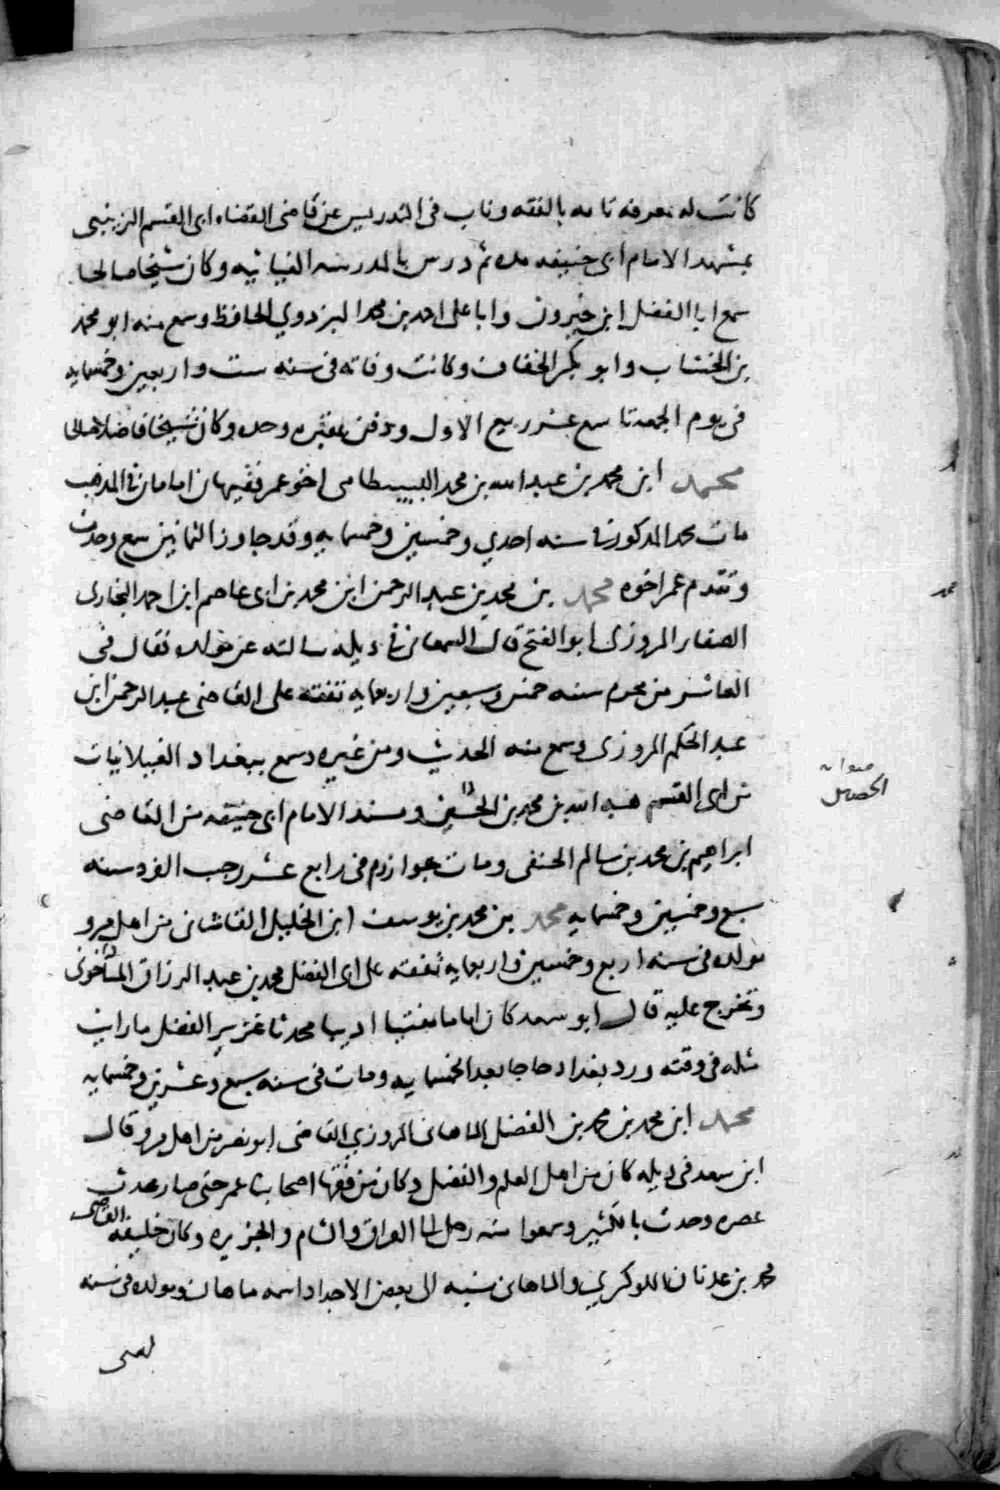 كانت له معرفه تامه بالفقه وناب فى التدريس عن قاضى القضاه ابى القسم الزينبى
بمشهد الامام ابى حنيفه مده ثم درس بالمدرسه الغياثيه وكان شيخا صالحا
سمع ابا الفضل ابن خيرون وابا على احمد بن محمد البزدوي الحافظ وسمع منه ابو محمد
بن الخشاب وابو بكر الخفاف وكانت وفاته فى سنه ست واربعين وخمسمايه
فى يوم الجمعه تاسع عشر ربيع الاول ودفن بمقبره وحده وكان شيخا فاضلا صالحا
محمد ابن محمد بن عبد الله بن محمد البيسطامى اخو عمر فقيهان امامان فى المذهب
مات محمد المذكور فى سنه احدي وخمسين وخمسمايه وقد جاوز الثمانين سمع وحدث
وتقدم عمر اخوه محمد بن محمد بن عبد الرحمن ابن محمد بن ابى عاصم ابن احمد البخارى
الصفار المروزى ابو الفتح قال السمعانى فى ذيله سالته عن مولده فقال فى
العاشر من محرم سنه خمس وسبعين واربعمايه تفقه على القاضى عبد الرحمن ابن
عبد الحكم المروزى وسمع منه الحديث ومن غيره وسمع ببغداد الغيلانيات
من ابى القسم هبه الله بن محمد بن الحسين ومسند الامام ابى حنيفه من القاضى
ابراهيم بن محمد بن سالم الحنفى ومات بخوارزم فى رابع عشر رجب الفرد سنه
سبع وخمسين وخمسمايه محمد بن محمد بن يوسف ابن الخليل القاشانى من اهل مرو
مولده فى سنه اربع وخمسين واربعمايه تفقه على ابى الفضل محمد بن عبد الرزاق الماخونى
وتخرج عليه قال ابو سعد كان اماما مفتيا اديبا محدثا غزير الفضل ما رايت
مثله فى وقته ورد بغداد حاجا بعد الخمسمايه ومات فى سنه سبع وعشرين وخمسمايه
محمد ابن محمد بن محمد بن الفضل الماهانى المروزي القاضى ابو نصر من اهل مرو قال
ابن سعد فى ذيله كان من اهل العلم والفضل وكان من فقها اصحابنا عمر حتى صار محدث
عصره وحدث بالكثير وسمعوا منه رحل الى العراق والشام والجزيره وكان خليفه القاضى
محمد بن عدنان اللوكري والماهانى نسبه الى بعض الاجداد اسمه ماهان ومولده فى سنه
صوابه
الحصين
محمد